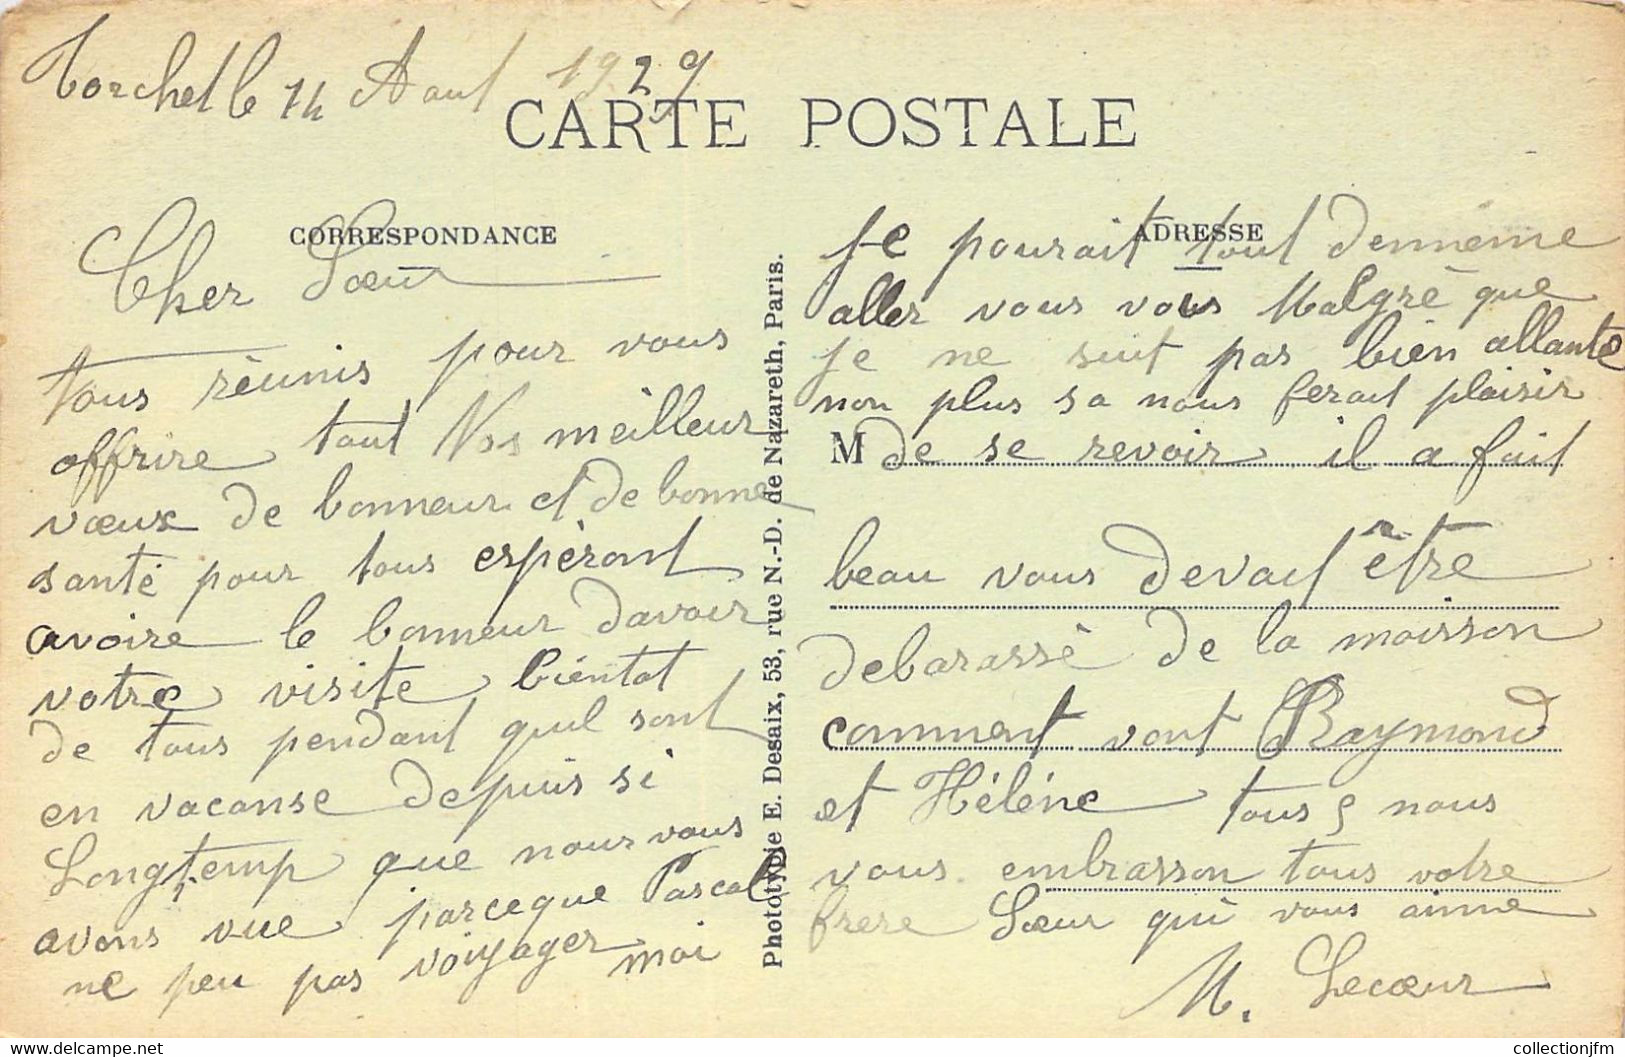 Torchet le 14 Aout 1929
CARTE POSTALE
CORRESPONDANCE
Cher Sœur
tous réunis pour vous
offrire tout Nos meilleur
vœux de bonneur et de bonne
santé pour tous espèrant
avoire le bonneur davoir
votre visite bientot
de tous pendant quil sont
en vacanse depuis si
Longtemp que nour vous
avons vue parceque Pascal
ne peu pas voiyager moi
Phototypie E. Desaix, 53, rue N.-D. de Nazareth, Paris.
ADRESSE
Je pourait tout demneme
aller vous vois Malgrè que
je ne suit pas bien allante
non plus sa nous ferait plaisir
M de se revoir il a fait
beau vous devait être
debarassè de la moisson
comment vont Raymond
et Hélène tous nous
vous embrasson tous votre
frere Sœur qui vous aime
M. Lecœur
collectionjfm